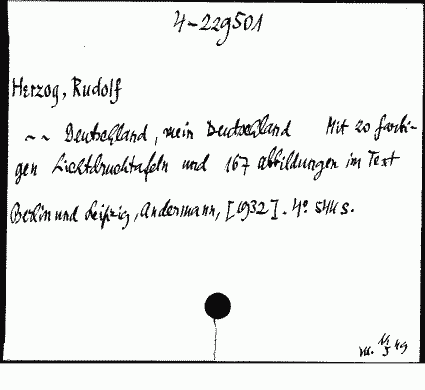 4-229501
Herzog, Rudolf
~~ Deutschland, mein Deutschland Mit 20 farbi-
gen Lichtdrucktafeln und 167 Abbildungen im Text
Berlin und Leipzig, Andermann, [1932]. 4° 544 S.